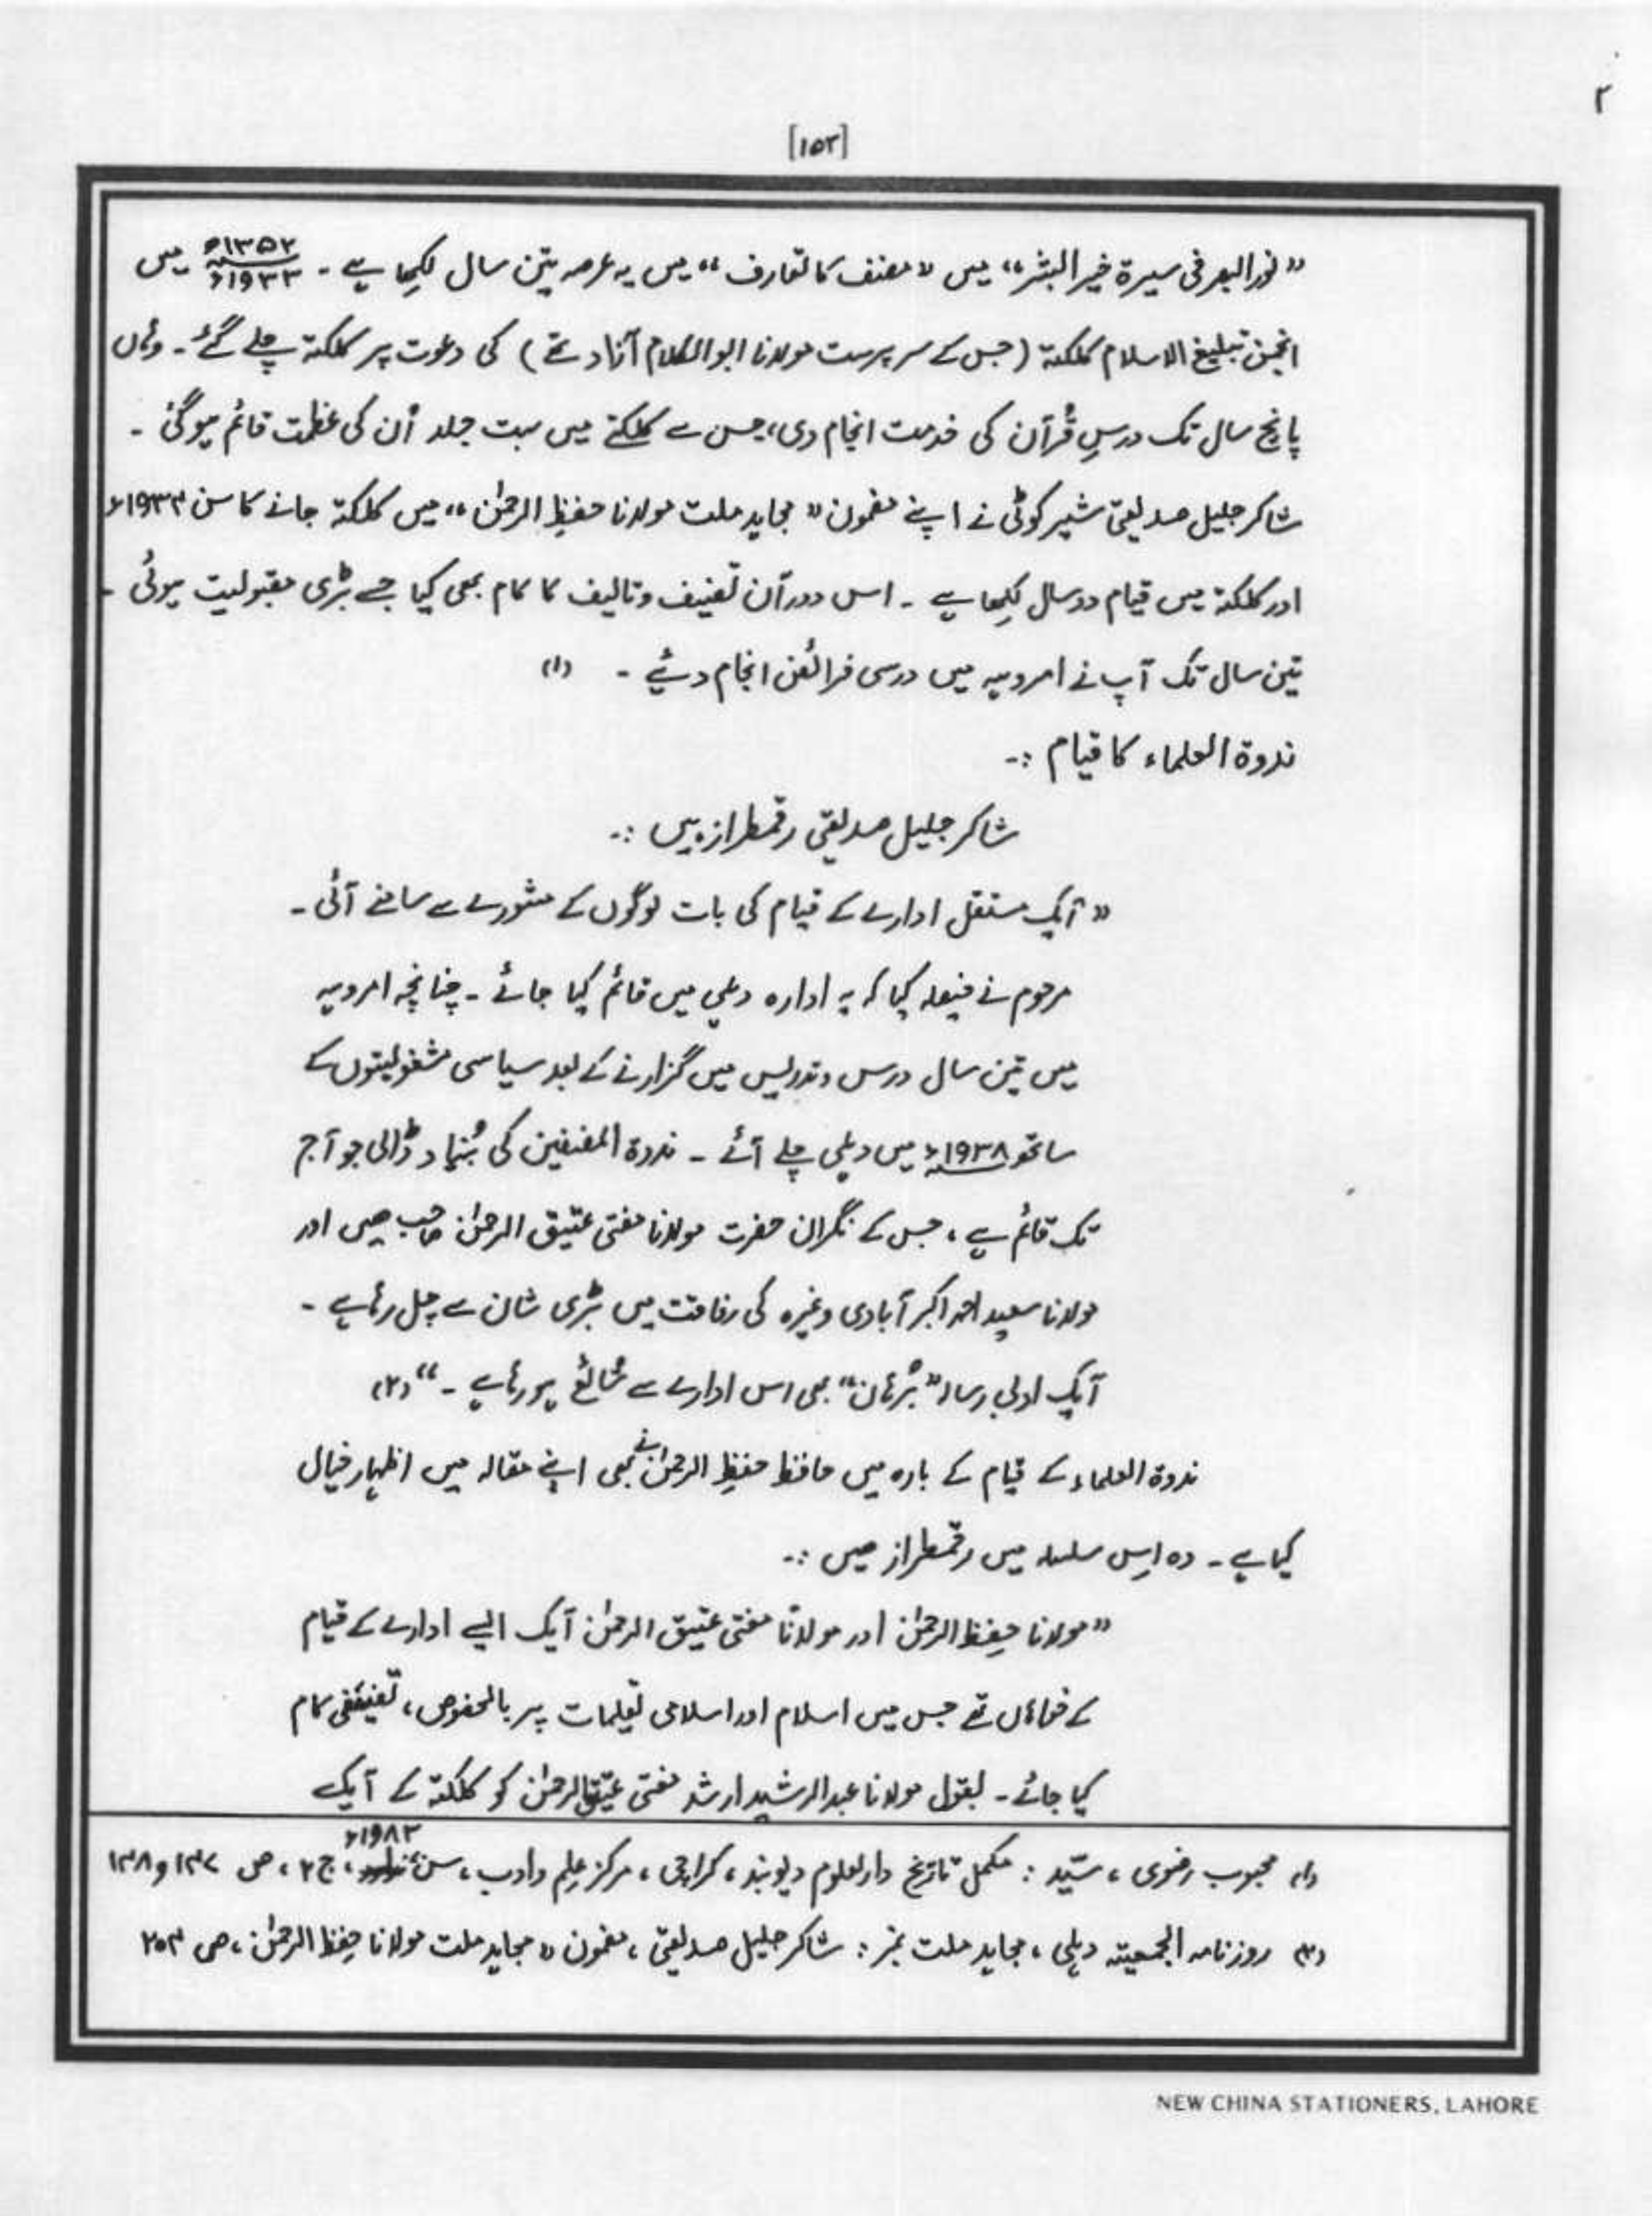 ۲
[۱۵۳]
”نور البصر فی سیرۃ خیر البشر“ میں ”مصنف کا تعارف“ میں یہ عرصہ تین سال لکھا ہے ۔ ۱۳۵۲ھ / ۱۹۳۳ء میں
انجمن تبلیغ الاسلام کلکتہ (جس کے سرپرست مولانا ابوالکلام آزاد تھے) کی دعوت پر کلکتہ چلے گئے ۔ وہاں
پانچ سال تک درسِ قُرآن کی خدمت انجام دی، جس سے کلکتے میں بہت جلد اُن کی عظمت قائم ہوگئی ۔
شاکر جلیل صدیقی شیرکوٹی نے اپنے مضمون ”مجاہد ملت مولانا حفیظ الرحمٰن“ میں کلکتہ جانے کا سن ۱۹۳۴ء
اور کلکتہ میں قیام دو سال لکِھا ہے ۔ اس دورآن تصنیف و تالیف کا کام بھی کیا جسے بڑی مقبولیت ہوئی ۔
تین سال تک آپ نے امروہہ میں درسی فرائض انجام دیئے ۔ (۱)
ندوۃ العلماء کا قیام :۔
شاکر جلیل صدیقی رقمطراز ہیں :۔
”آیک مستقل ادارے کے قیام کی بات لوگوں کے مشورے سے سامنے آئی ۔
مرحوم نے فیصلہ کیا کہ یہ ادارہ دہلی میں قائم کیا جائے ۔ چنانچہ امروہہ
میں تین سال درس و تدریس میں گزارنے کے بعد سیاسی مشغولیتوں کے
ساتھ ۱۹۳۸ء میں دہلی چلے آئے ۔ ندوۃ المصنفین کی بُنیاد ڈالی جو آج
تک قائم ہے ، جس کے نگران حضرت مولانا مفتی عتیق الرحمٰن صاحب ھیں اور
مولانا سعید احمد اکبر آبادی وغیرہ کی رفاقت میں بڑی شان سے چل رہا ہے ۔
آیک ادبی رسالہ ”بُرہان“ بھی اس ادارے سے شائع ہو رہا ہے ۔“ (۲)
ندوۃ العلماء کے قیام کے بارہ میں حافظ حفیظ الرحمٰن نے بھی اپنے مقالہ میں اظہار خیال
کیا ہے ۔ وہ اِس سلسلہ میں رقمطراز ھیں :۔
”مولانا حِفظ الرحمٰن اور مولانا مفتی عتیق الرحمٰن آیک ایسے ادارے کے قیام
کے خواہاں تھے جس میں اسلام اور اسلامی تعلیمات پر بالخصوص ، تصنیفی کام
کیا جائے ۔ بقول مولانا عبدالرشید ارشد مفتی عتیق الرحمٰن کو کلکتہ کے آیک
(۱) محبوب رضوی ، سیّد : مکمل تاریخ دارلعلوم دیوبند ، کراچی ، مرکز عِلم و ادب ، سن ۱۹۸۳ء ، ج ۲ ، ص ۱۳۷ و ۱۳۸
(۲) روزنامہ الجمعیتہ دہلی ، مجاہد ملت نمبر : شاکر جلیل صدیقی ، مضمون ”مجاہد ملت مولانا حِفظ الرحمٰن ، ص ۲۵۴
NEW CHINA STATIONERS, LAHORE